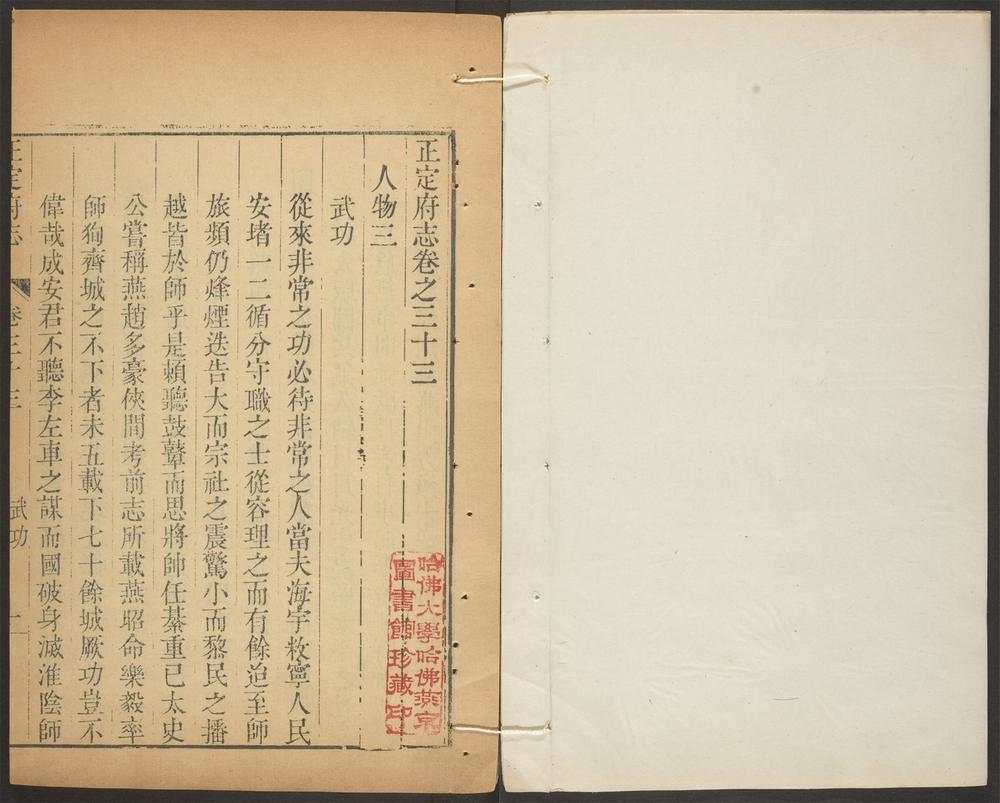 正定府志卷之三十三
人物三
武功
從來非常之功必待非常之人當夫海宇敉寧人民
安堵一二循分守職之士從容理之而有餘迨至師
旅頻仍烽煙迭告大而宗社之震驚小而黎民之播
越皆於師乎是賴聽鼓鼙而思將帥任綦重已太史
公嘗稱燕趙多豪俠間考前志所載燕昭命樂毅率
師狥齊城之不下者未五載下七十餘城厥功豈不
偉哉成安君不聽李左車之謀而國破身滅淮陰師
正定府志
卷三十三
武功
一
哈佛大學哈佛燕京
圖書館珍藏印